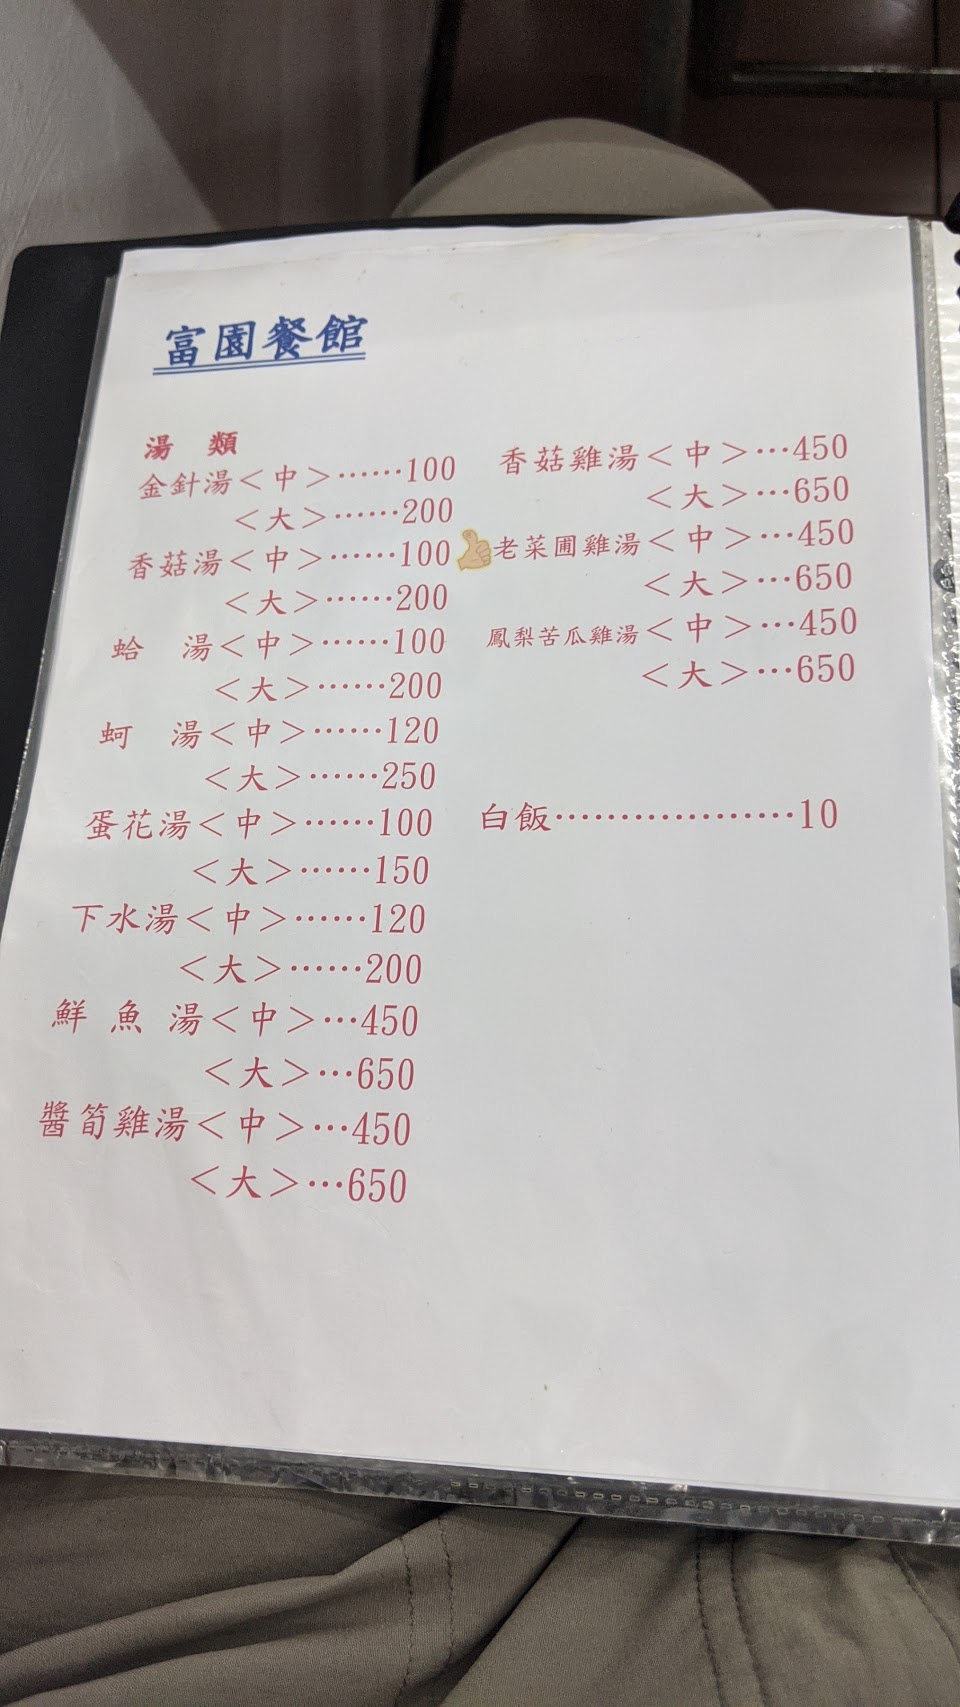 富園餐館
湯 類
金針湯<中>……100
<大>……200
香菇湯<中>……100
<大>……200
蛤 湯<中>……100
<大>……200
蚵 湯<中>……120
<大>……250
蛋花湯<中>……100
<大>……150
下水湯<中>……120
<大>……200
鮮 魚 湯<中>…450
<大>…650
醬筍雞湯<中>…450
<大>…650
香菇雞湯<中>…450
<大>…650
老菜圃雞湯<中>…450
<大>…650
鳳梨苦瓜雞湯<中>…450
<大>…650
白飯………………10